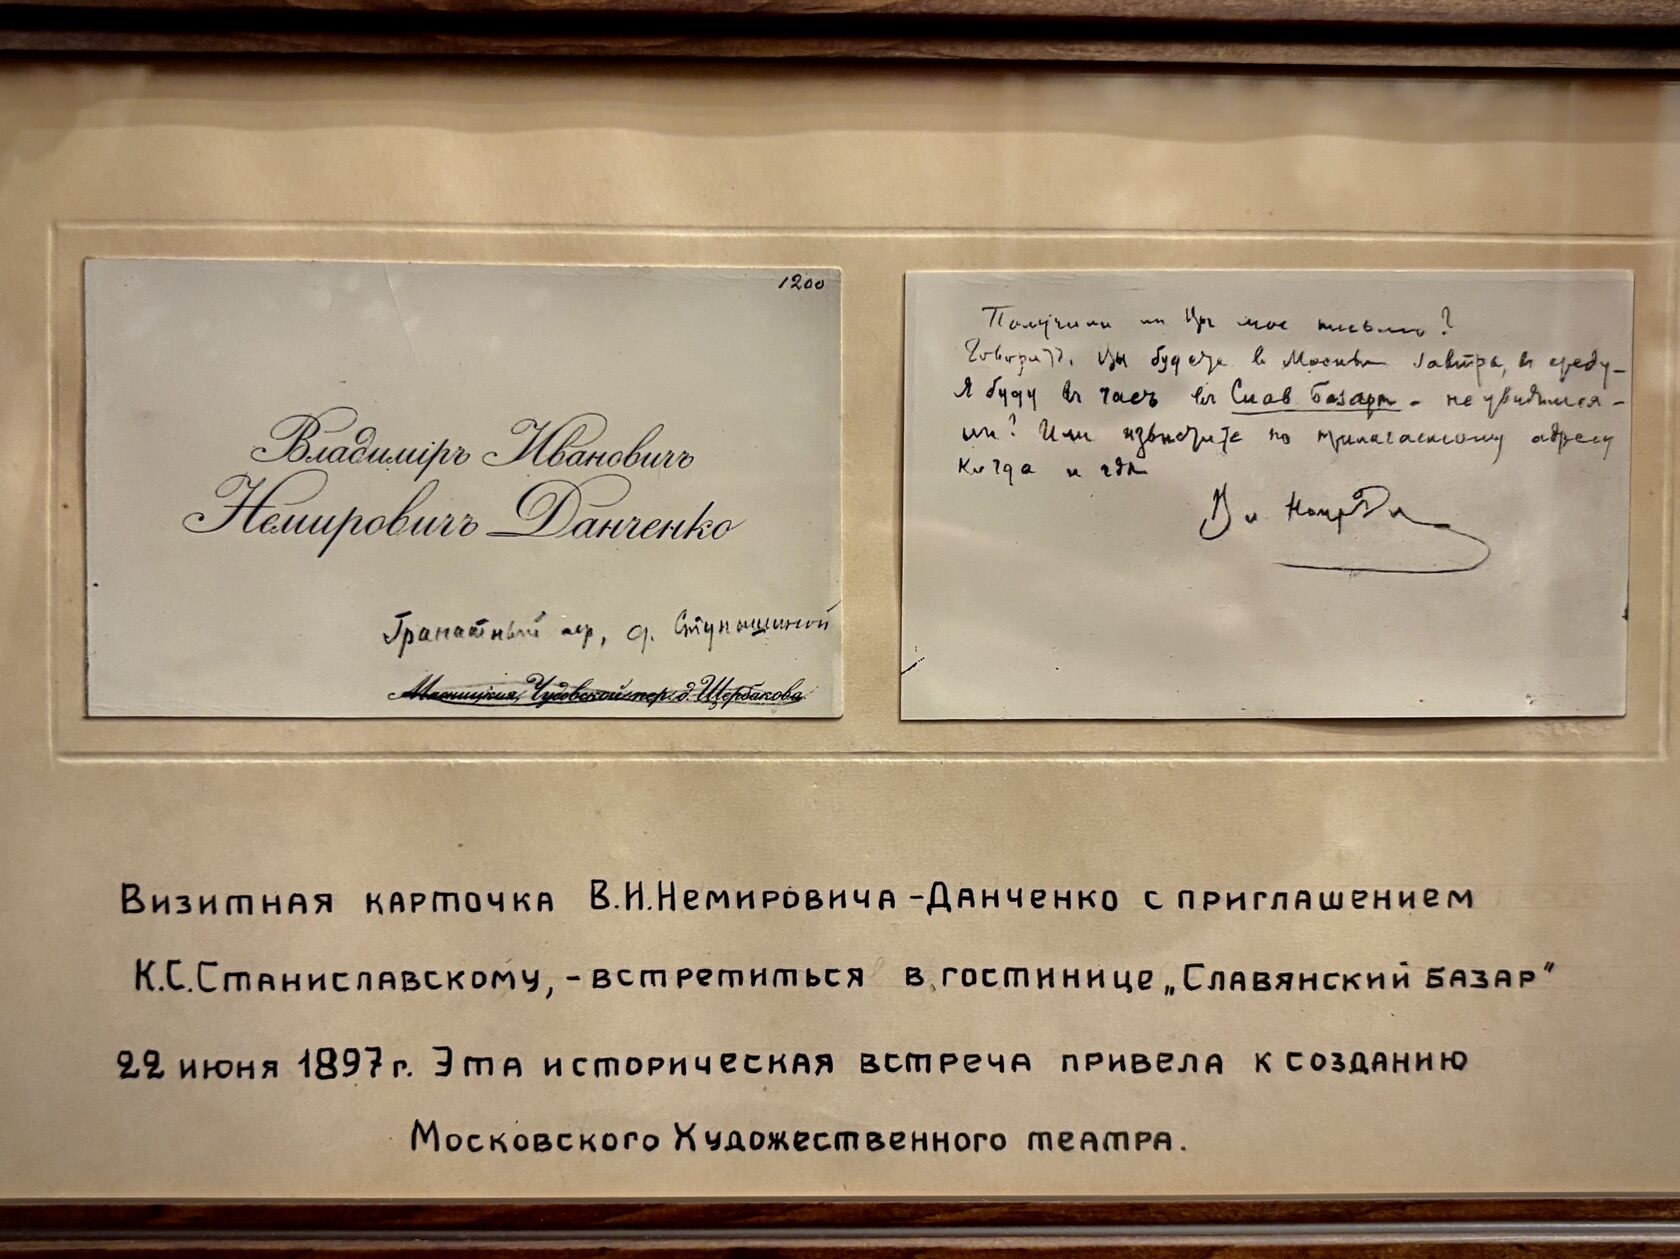 1200
Владиміръ Ивановичъ
Немировичъ Данченко
Гранатный пер, д. Ступишиной
Мясницкая, Чудовской пер. д. Щербакова
Получили ли Вы мое письмо?
Говорятъ, Вы будете в Москвѣ завтра, въ среду –
Я буду въ часъ въ Слав Базарѣ – не увидимся –
ли? Или извѣстите по прилагаемому адресу
когда и гдѣ
Визитная карточка В.И.Немировича-Данченко с приглашением
К.С.Станиславскому, - встретиться в гостинице „Славянский базар"
22 июня 1897г. Эта историческая встреча привела к созданию
Московского Художественного театра.